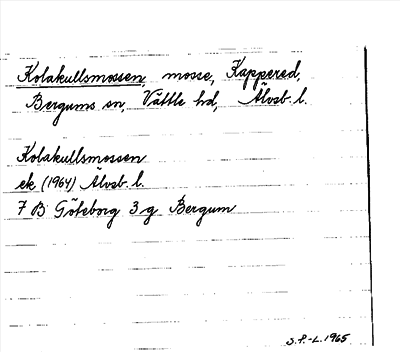 Kolakullsmossen, mosse, Kappered,
Bergums sn, Vättle hd, Älvsb. l.
Kolakullsmossen
ek (1964) Älvsb. l.
7 B Göteborg 3 g Bergum
S.P.-L. 1965